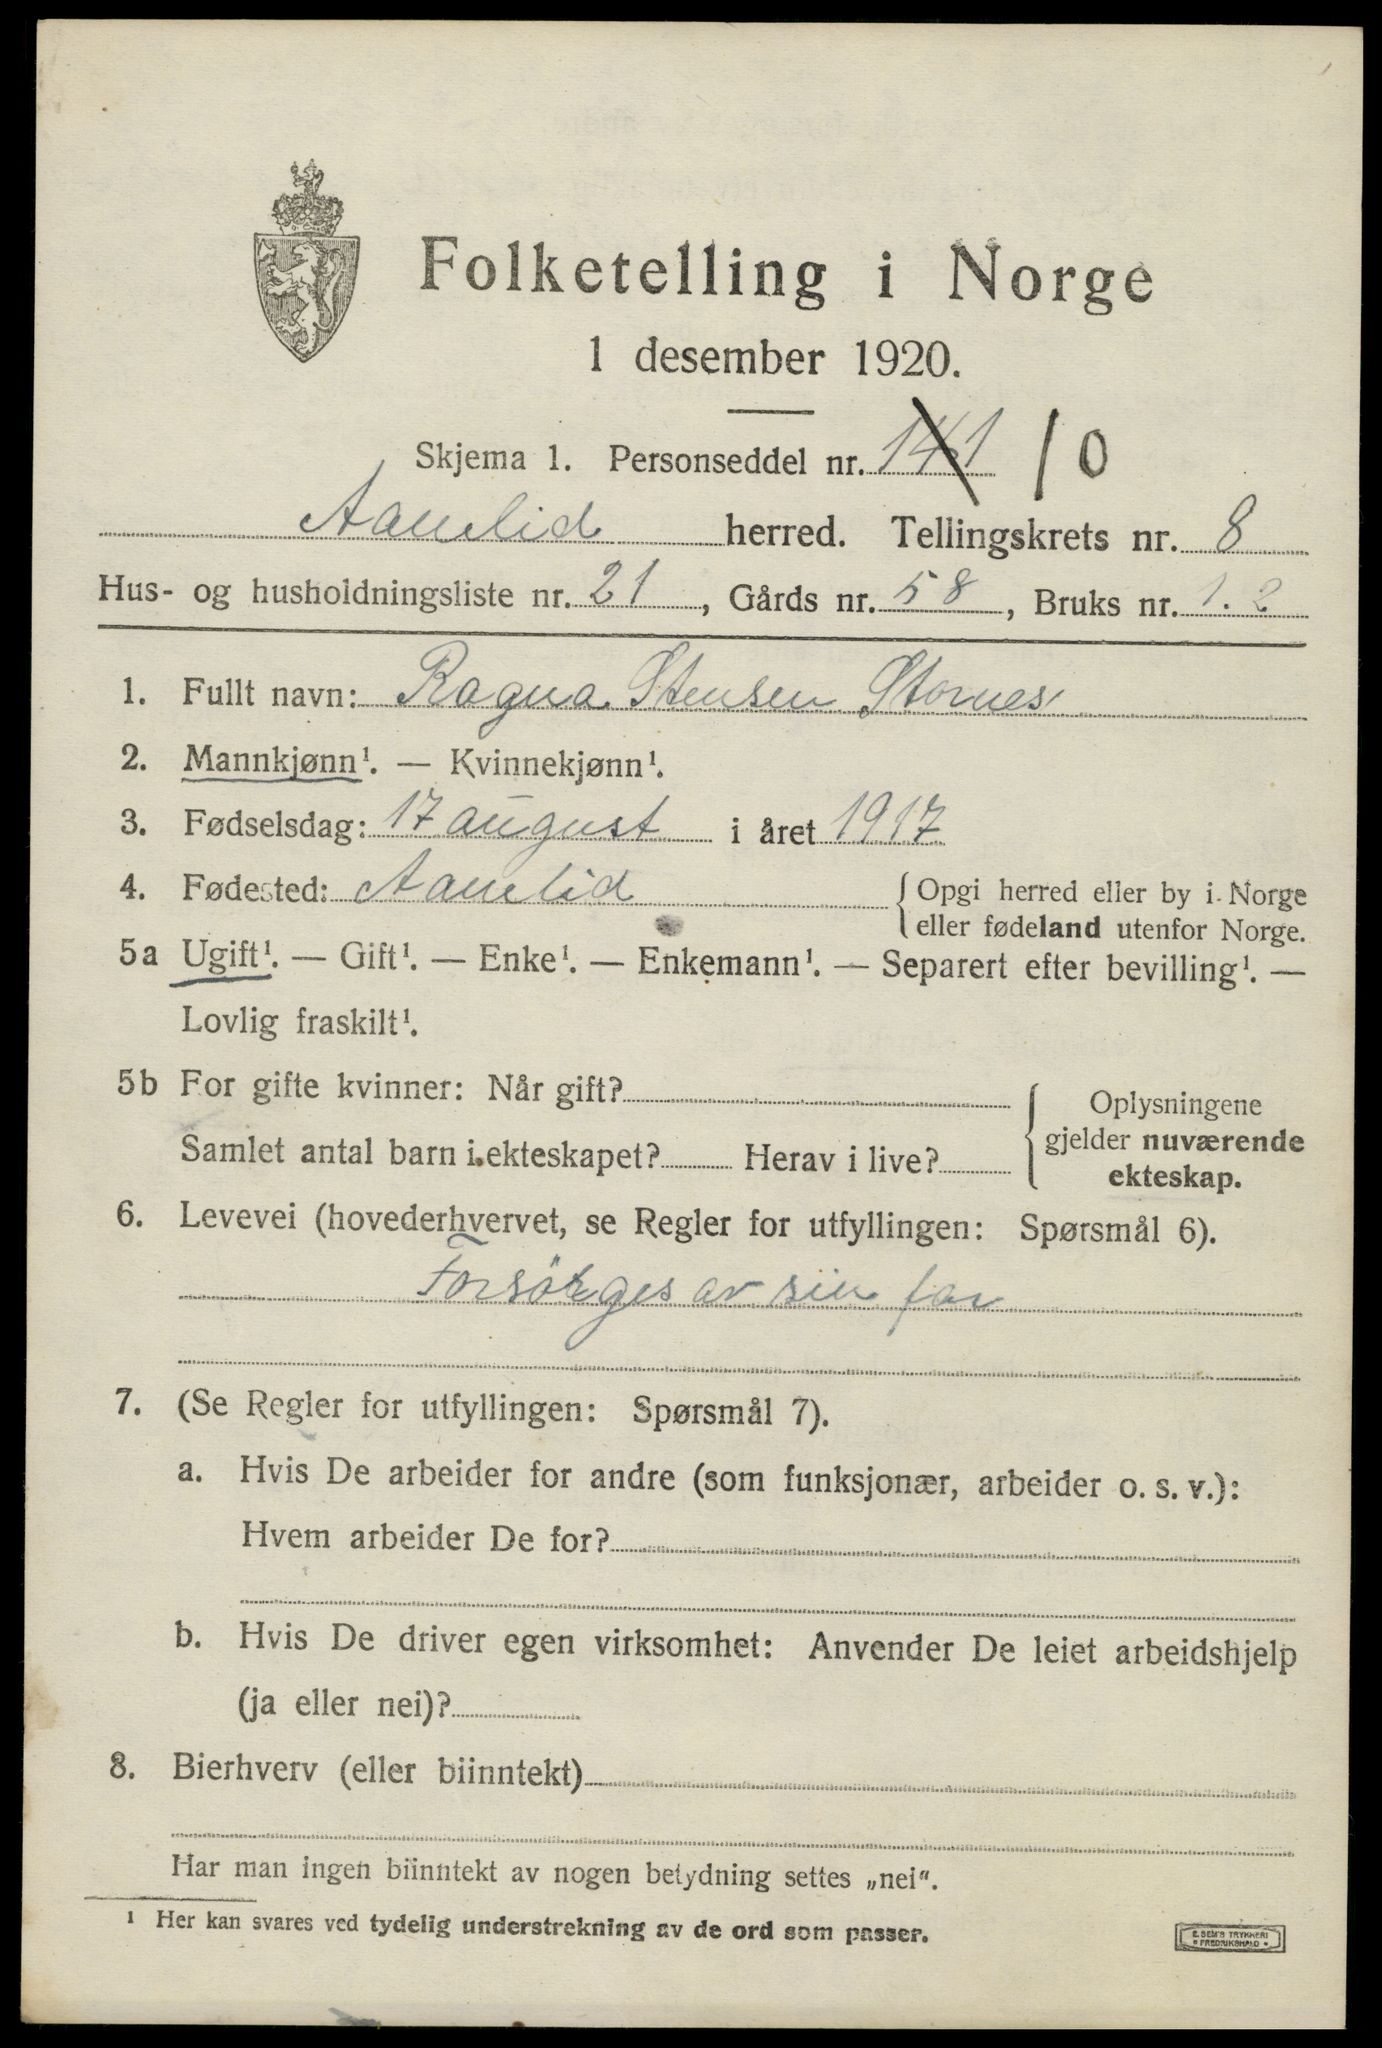 Folketelling i Norge
1 desember 1920.
Skjema 1. Personseddel nr. 141 10
Aamlid herred. Tellingskrets nr. 8
Hus- og husholdningsliste nr. 21, Gårds nr. 58, Bruks nr. 1. 2
1. Fullt navn: Ragna Stensen Stornes
2. Mannkjønn¹. — Kvinnekjønn¹.
3. Fødselsdag: 17 august i året 1917
4. Fødested: Aamlid { Opgi herred eller by i Norge
eller fødeland utenfor Norge.
5a Ugift¹. — Gift¹. — Enke¹. — Enkemann¹. — Separert efter bevilling¹. —
Lovlig fraskilt¹.
5b For gifte kvinner: Når gift? { Oplysningene
gjelder nuværende
Samlet antal barn i ekteskapet? Herav i live?
ekteskap.
6. Levevei (hovederhvervet, se Regler for utfyllingen: Spørsmål 6).
Forsörges av sin far
7. (Se Regler for utfyllingen: Spørsmål 7).
a. Hvis De arbeider for andre (som funksjonær, arbeider o. s. v.):
Hvem arbeider De for?
b. Hvis De driver egen virksomhet: Anvender De leiet arbeidshjelp
(ja eller nei)?
8. Bierhverv (eller biinntekt)
Har man ingen biinntekt av nogen betydning settes „nei“.
¹ Her kan svares ved tydelig understrekning av de ord som passer.
E. SEM'S TRYKKERI
FREDRIKSHALD